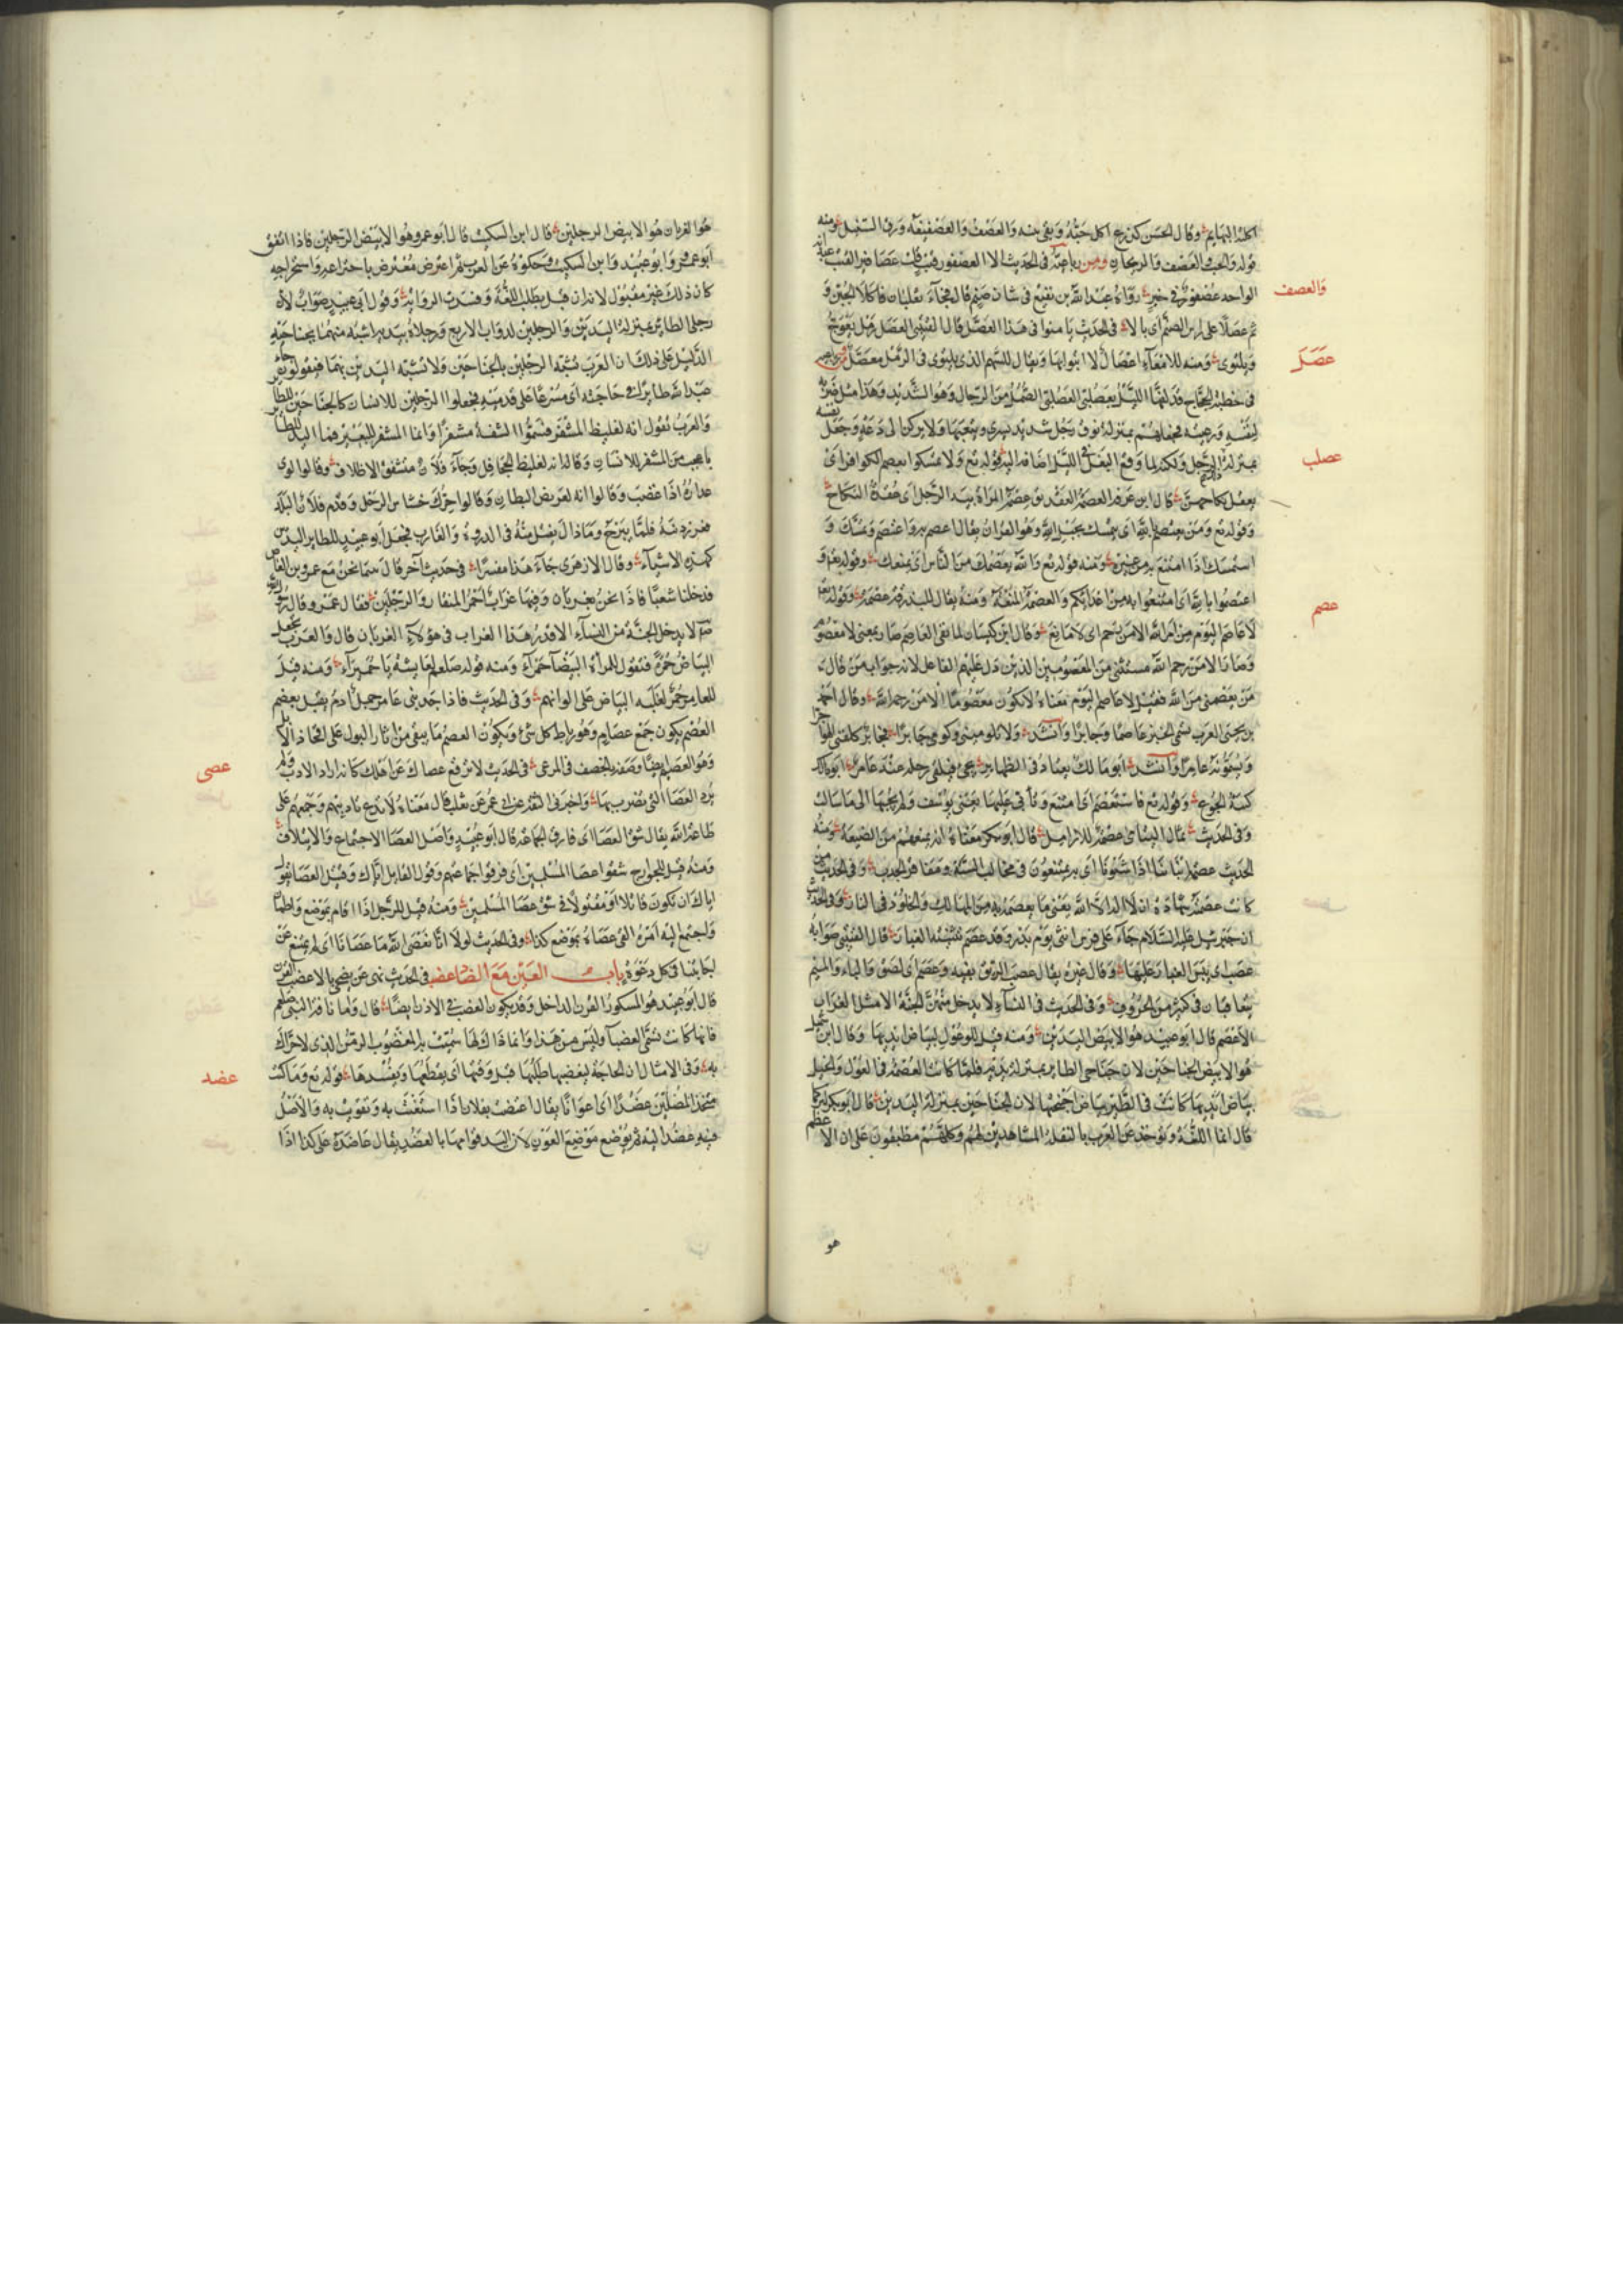 اكلته البهايم وقال الحسن كزرع اكل حبه وبقى تبنه والعصف والعصيفة ورق السنبل ومنه
قوله والحب ذو العصف والريحان ومن رباعيه فى الحديث الا العصفور قتب عيدانه
الواحد عصفور فى خبر رواه عبد الله بن نفيع فى شان صنم قال فجاء ثعلبان فاكلا الجبن و
والعصف
ثم عصلا على راس الصنم اى بالا فى الحديث يامنوا فى هذا العصل قال القتيبى العصل رمل يعوج
ويلتوى ومنه للامعاء اعصال لالتوائها ويقال للسهم الذى يلتوى فى الرمل معصل
عصل
فى خطبة الحجاج قد لفها الليل بعصلبى العصلبى الصمل من الرجال وهو الشديد وهذا مثل ضربه
لنفسه ورعيته فجعلهم بمنزلة نوق رجل شديد يسرى ويتعبها ولا يركن الى دعة وجعل نفسه
بمنزلة الرجل ولكنه لما وقع الفعل فى الليل اضافه اليه قوله تع ولا تمسكوا بعصم الكوافر اى
عصلب
بعقد نكاحهن قال ابن عرفة العصمة العقد يقال عصمة المراة بيد الرجل اى عقدة النكاح
وقوله تع ومن يعتصم بالله اى يمسك بحبل الله وهو القران يقال اعصم به واعتصم وتمسك و
استمسك اذا امتنع به من غيره ومنه قوله تع والله يعصمك من الناس اى يمنعك وقوله تع و
اعتصموا بالله اى امتنعوا به من اعدائكم والعصمة المنعة ومنه يقال للبذرقة عصمة وقوله تع
عصم
لا عاصم اليوم من امر الله الا من رحم اى لا مانع وقال ابن كيسان لما نفى العاصم صار بمعنى لا معصوم
وصار الا من رحم الله مستثنى من المعصومين الذين دل عليهم الفاعل لانه جواب من قال
من يعصمنى من الله فقيل لا عاصم اليوم معناه لا تكون معصوما الا من رحم الله وقال احمد
بن يحيى العرب تسمى الخبز عاصما وجابرا وانشد ولا تلومينى ولومى جابرا فجابر كلفنى الهواجرا
ويسمونه عامرا وانشد ابو مالك يعتادنى الظهاير يجى فيلقى رحله عند عامر ابو مالك
كنية الجوع وقوله تع فاستعصم اى امتنع وتابى عليها يعنى يوسف ولم يجبها الى ما سالت
وفى الحديث ثمال اليتامى عصمة للارامل قال ابو بكر معناه انه يمنعهم من الضيعة ومنه
الحديث عصمة ابنائنا اذا شتونا اى به يمتنعون فى مخالب السنة ومعناه الجدب وفى الحديث من
كانت عصمته شهادة ان لا اله الا الله يعنى ما يعصمه به من المهالك والخلود فى النار وفى الحديث
ان جبرئيل عليه السلام جاء على فرس انثى يوم بدر وقد عصم ثنيته الغبار قال القتيبى صوابه
عصب اى يبس الغبار عليها وقال غيره يقال عصب الريق بفيه وعصم اى لصق والباء والميم
يتعاقبان فى كثير من الحروف وفى الحديث فى النساء لا يدخل منهن الجنة الا مثل الغراب
الاعصم قال ابو عبيد هو الابيض اليدين ومنه قيل للوعول لبياض ايديها وقال ابن شميل
هو الابيض الجناحين لان جناحى الطاير بمنزلة يديه فلما كانت العصمة فى الوعول والخيل
بياض ايديها كانت فى الطير بياض اجنحتها لان الجناحين بمنزلة اليدين قال ابو بكر
قال انما اللغة توخذ عن العرب بالنقلة المشاهدين لهم وكلهم مطبقون على ان الاعصم
هو
هو الغربان هو الابيض الرجلين قال ابن السكيت قال ابو عمرو هو الابيض الرجلين فاذا اتفق
ابو عمرو وابو عبيد وابن السكيت وحكوه عن العرب ثم اعترض معترض باختراعه واستخراجه
كان ذلك غير مقبول لانه ان قبل بطلت اللغة وفسدت الرواية وقول ابى عبيد صواب لان
رجلى الطاير بمنزلة اليدين والرجلين لدواب الاربع ورجلاه بيديه اشبه منهما بجناحيه
الدليل على ذلك ان العرب تشبه الرجلين بالجناحين ولا تشبه اليدين بهما فيقولون جاء
عبد الله طايرا فى حاجته اى مسرعا على قدميه فجعلوا الرجلين للانسان كالجناحين للطاير
والعرب تقول انه لغليظ المشفر فسموا الشفة مشفرا وانما المشفر للبعير
للانسان وقالوا انه لغليظ الجحافل وجاء فلان متشقق الاظلاف وقالوا لوى
عذاره اذا غضب وقالوا انه لعريض البطان وقالوا حرك خشاش الرجل وقدم فلان البلد
فغرز ذنبه فلما يبرح وما زال يفتل منه فى الذروة والغارب فجعل ابو عبيد للطاير اليدين
كهذه الاشياء وقال الازهرى جاء هذا مفسرا فى حديث اخر قال بينما نحن مع عمرو بن العاص
فدخلنا شعبا فاذا نحن بغربان وفيها غراب احمر المنقار والرجلين فقال عمرو قال رسول الله
صلعم لا يدخل الجنة من النساء الا قدر هذا الغراب فى هولاء الغربان قال والعرب تجعل
البياض حمرة فتقول للمراة البيضا حمراء ومنه قوله صلعم لعايشة يا حميراء ومنه قيل
للعجم حمر لغلبة البياض على الوانهم وفى الحديث فاذا جد بنى عامر جمل ادم مقيد بعصم
العصم يكون جمع عصام وهو رباط كل شئ ويكون العصم ما يبقى من اثار البول على افخاذ الابل
فى الحديث لا ترفع عصاك عن اهلك كانه اراد الادب ولم
عصى
يرد العصا التى يضرب بها واخبرنى الثقة عن ابى عمر عن ثعلب قال معناه لا تدع تاديبهم وجمعهم على
طاعة الله يقال شق العصا اى فارق الجماعة قال ابو عبيد واصل العصا الاجتماع والايتلاف
ومنه قيل للخوارج شقوا عصا المسلمين اى فرقوا جماعتهم وقول القايل اياك وقتيل العصا يقول
اياك ان تكون قاتلا او مقتولا فى شق عصا المسلمين ومنه قيل للرجل اذا اقام بموضع واطمان
واجتمع اليه امره القى عصاه بموضع كذا وفى الحديث لولا انا نعصى الله ما عصانا اى لم يمتنع عن
اجابتنا فى كل دعوة باب العين مع الضاد عضب فى الحديث نهى عن يضحى بالاعضب القرن
قال ابو عبيد هو المكسور القرن الداخل وقد يكون العضب فى الاذن ايضا قال واما ناقة النبى صلعم
فانها كانت تسمى العضبا وليس من هذا وانما ذاك لها سميت به المعضوب الزمن الذى لا حراك
به وفى الامثال ان الحاجة ليعضبها طلبها قبل وقتها اى يقطعها ويفسدها قوله تع وما كنت
عضد
متخذ المضلين عضدا اى اعوانا يقال اعتضدت بفلان اذا استغثت به وتقويت به والاصل
فيه عضد اليد ثم يوضع موضع العون لان اليد قوامها بالعضد يقال عاضده على كذا اذا